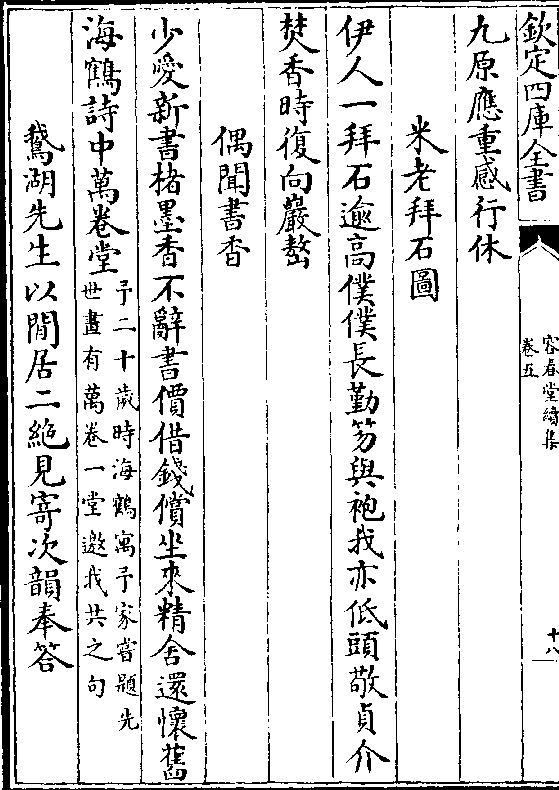 欽定四庫全書
容春堂續集
卷五
十八
九原應重感行休
米老拜石圖
伊人一拜石逾高僕僕長勤笏與袍我亦低頭敬貞介
焚香時復向巖嶅
偶聞書香
少愛新書楮墨香不辭書價借錢償坐來精舍還懷舊
海鶴詩中萬卷堂予二十歲時海鶴寓予家嘗題先
世畫有萬卷一堂邀我共之句
鵞湖先生以閒居二絶見寄次韻奉答